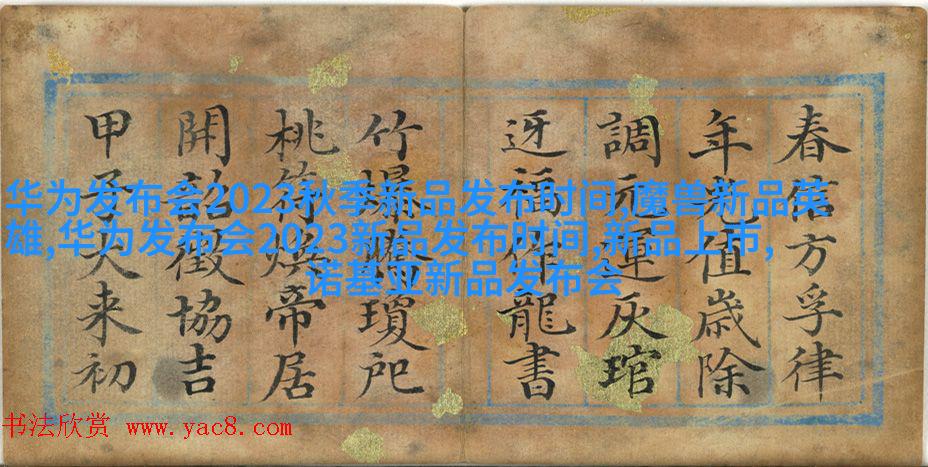 春信方孚律
年光值歳除
調元運灰琯
迓福龍書
竹爆瓊戺
桃符煥帝居
開韶徵協吉
甲子来初
华为发布会2023秋季新品发布时间,魔兽新品英
雄,华为发布会2023新品发布时间,新品上市,
诺基亚新品发布会
书法欣赏 www.yac8.com